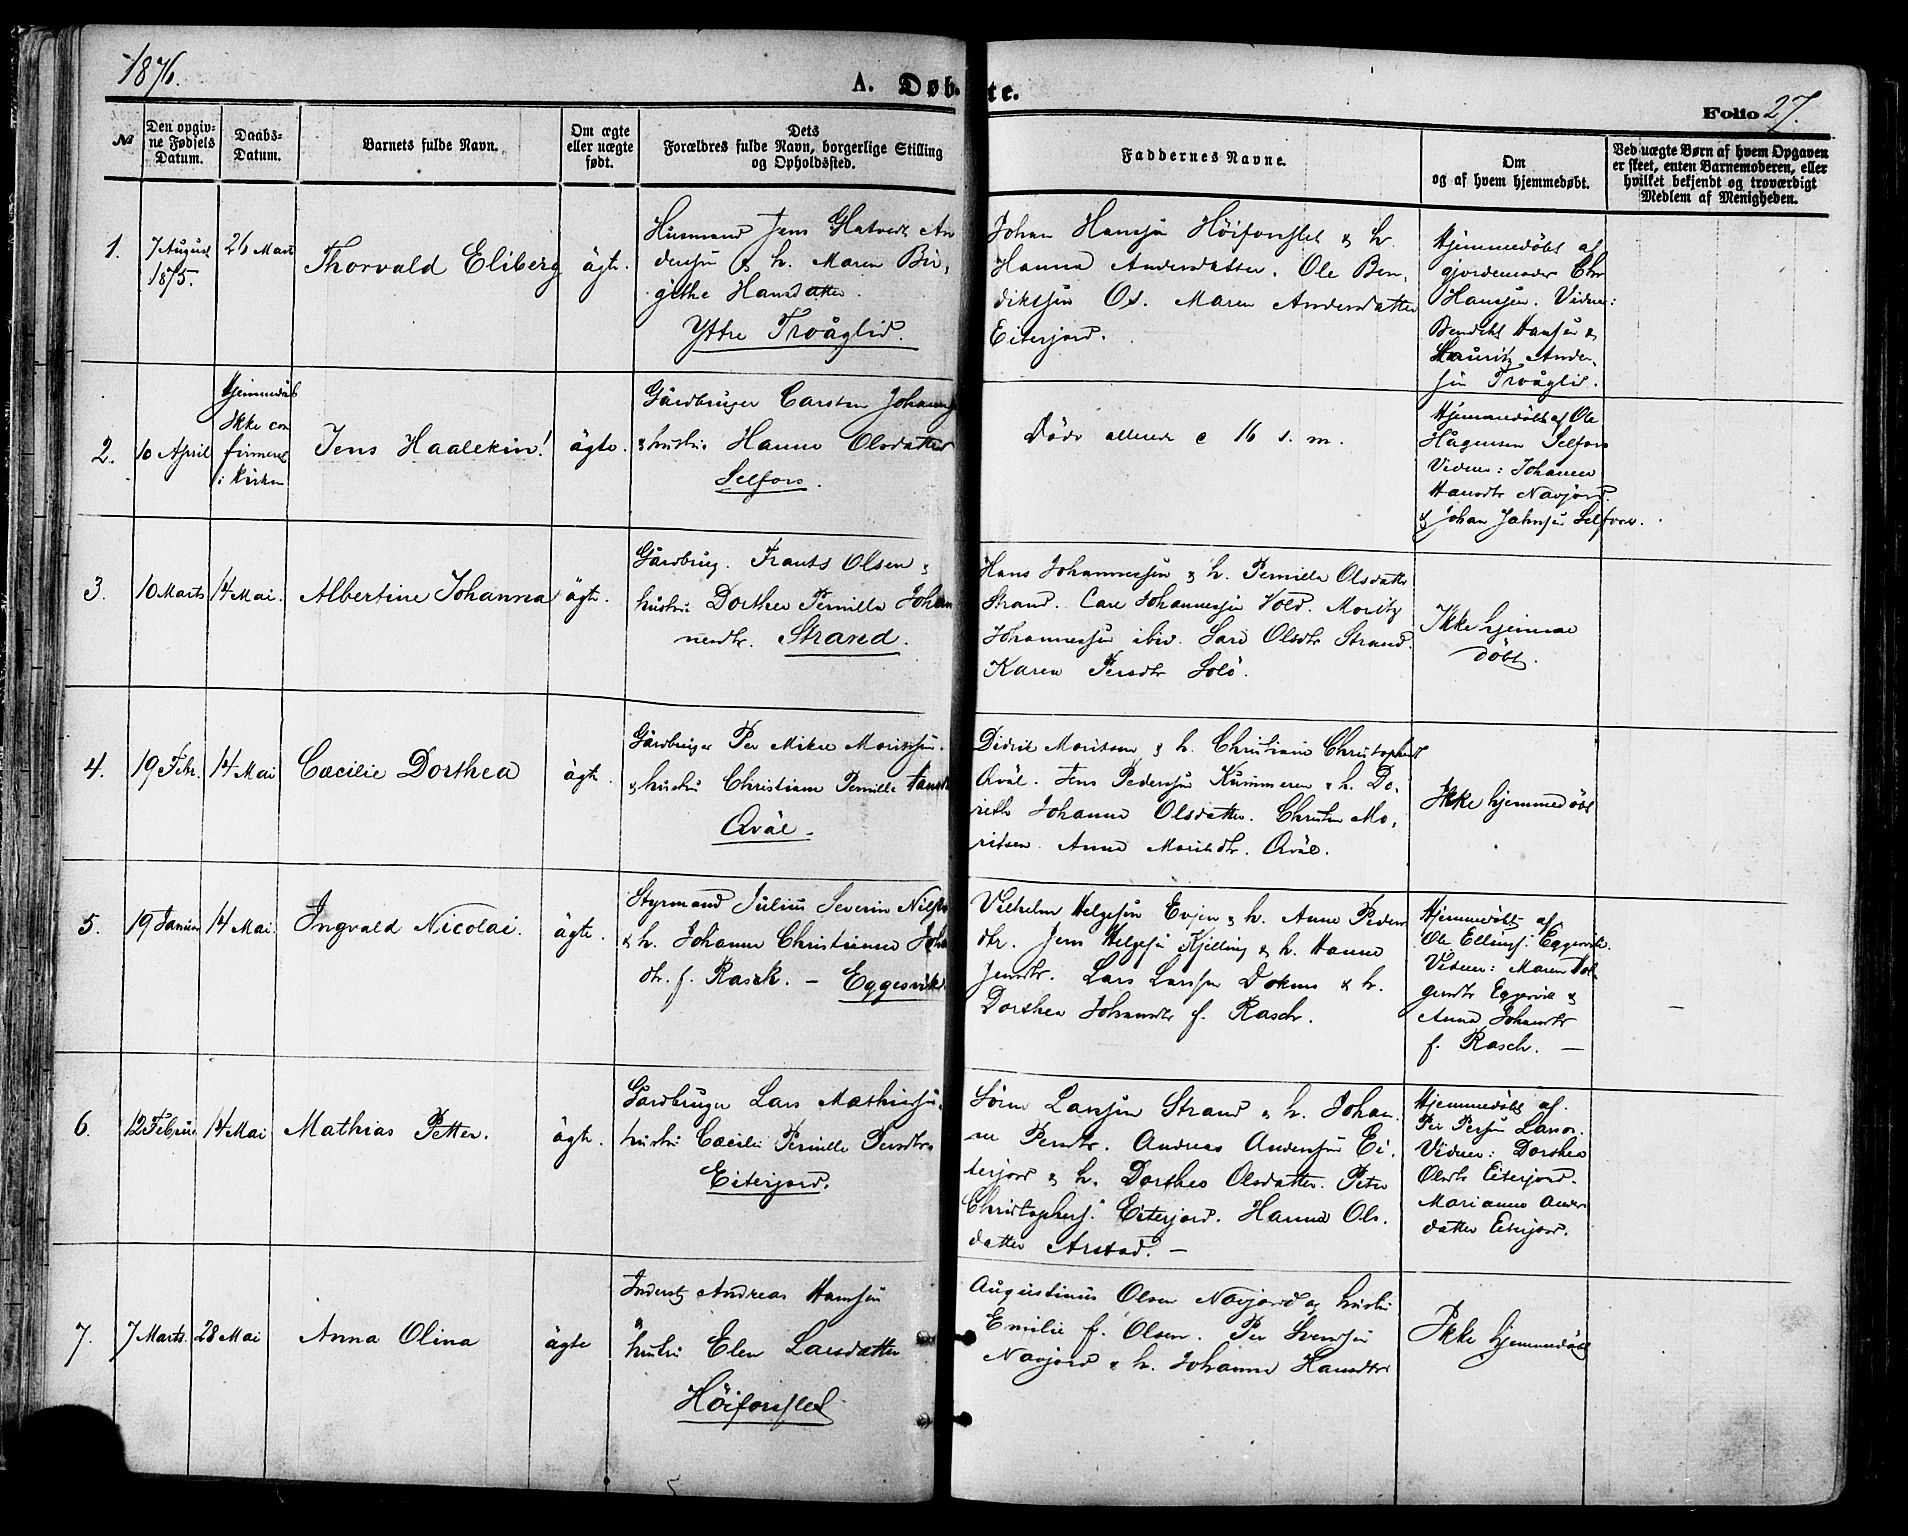 1876.
A. Døbte.
Folio 27.
№
Den opgivne Fødsels Datum.
Daabs-Datum.
Barnets fulde Navn.
Om ægte eller uægte født.
Dets Forældres fulde Navn, borgerlige Stilling og Opholdssted.
Faddernes Navne.
Om og af hvem hjemmedøbt.
Ved uægte Børn af hvem Opgaven er skeet, enten Barnemoderen, eller hvilket bekjendt og troværdigt Medlem af Menigheden.
1.
7 August
1875.
26 Mars
Thorvald Eliberg
ägte.
Husmand Jens Hatvedt An
dersen & h. Maren Bir,
githe Hansdatter.
Yttre Tvåglid.
Johan Hansen Höiforsflet & h.
Hanna Andersdatter. Ole Ben,
diksen Os. Maren Andersdatter
Eiterjord.
Hjemmedöbt af
gjordemoder Chr
Hansen. Vidner:
Bendikt Hansen &
Lauritz Ander,
sen Tvåglid.
2.
10 April
Hjemmedöbt
Ikke con
firmeret
i Kirken
Jens Haalekin!
ägte.
Gårdbruger Carsten Johans
& hustru Hanna Olsdatter
Selfors.
Döde allerede c 16 s. m.
Hjemmedöbt af Ole
Hågensen Selfors
Vidner: Johanna
Hansdtr Navjord.
& Johan Jahnsen Selfors.
3.
10 Marts
14 Mai.
Albertine Johanna
ägte.
Gårdbrug. Frants Olsen &
hustru Dorthea Pernilla Johan
nesdtr. Strand.
Hans Johannessen & h. Pernilla Olsdatter
Strand. Carl Johannessen Vold. Moritz
Johannessen ibid. Sara Olsdtr Strand.
Karen Persdtr Solö.
Ikke hjemme
döbt.
4.
19 Febr.
14 Mai
Cæcilie Dorthea
ägte.
Gårdbruger Per Mikal Moritssen.
& hustru Christiane Pernilla
Qväl.
Didrik Moritsen & h. Christiane Christophers
Qväl. Jens Pedersen Kummeren & h. Do,
reth Johanna Olsdatter. Christen Mo,
ritsen. Anna Moritsdtr. Qväl.
Ikke hjemmedöbt
5.
19 Januar
14 Mai.
Ingvald Nicolai.
ägte.
Styrmand Julius Severin Nils
& h. Johanna Christianna Joha
dtr. f. Rasck. – Eggesvik
Vilhelm Helgesen Evjen & h. Anna Peders
dtr. Jens Helgesen Kjelling & h. Hanna
Jensdtr. Lars Larsen Dokmo & h.
Dorthea Johansdtr f. Rasch.
Hjemmedöbt af
Ole Ellings. Eggesvik.
Vidner: Maren Hel
gesdtr Eggesvik &
Anna Johansdtr
f. Rasch. –
–
6.
12 Februar
14 Mai
Mathias Petter.
ägte.
Gårdbruger Lars Mathiassen.
hustru Cæcilie Pernille Persdtr
Eiterjord.
Sörn Larsen Strand & h. Johan
ne Persdtr. Andreas Andersen Ei,
terjord & h. Dorthea Olsdatter. Peter
Christophers. Eiterjord. Hanna Ols,
datter Arstad. –
Hjemmedöbt af.
Per Persen
Vidner: Dorthea
Olsdtr Eiterjord.
Marianna Anders
datter Eiterjord.
7.
7 Marts.
28 Mai
Anna Olina
ägte
Inderst Andreas Hansen
&
hustru Elen Larsdatter
Höiforsflet
Augustinus Olsen Navjord og hustru
Emilie f. Olsen. Per Svensen
Navjord & h. Johanna Hansdtr
Ikke hjemmedöbt